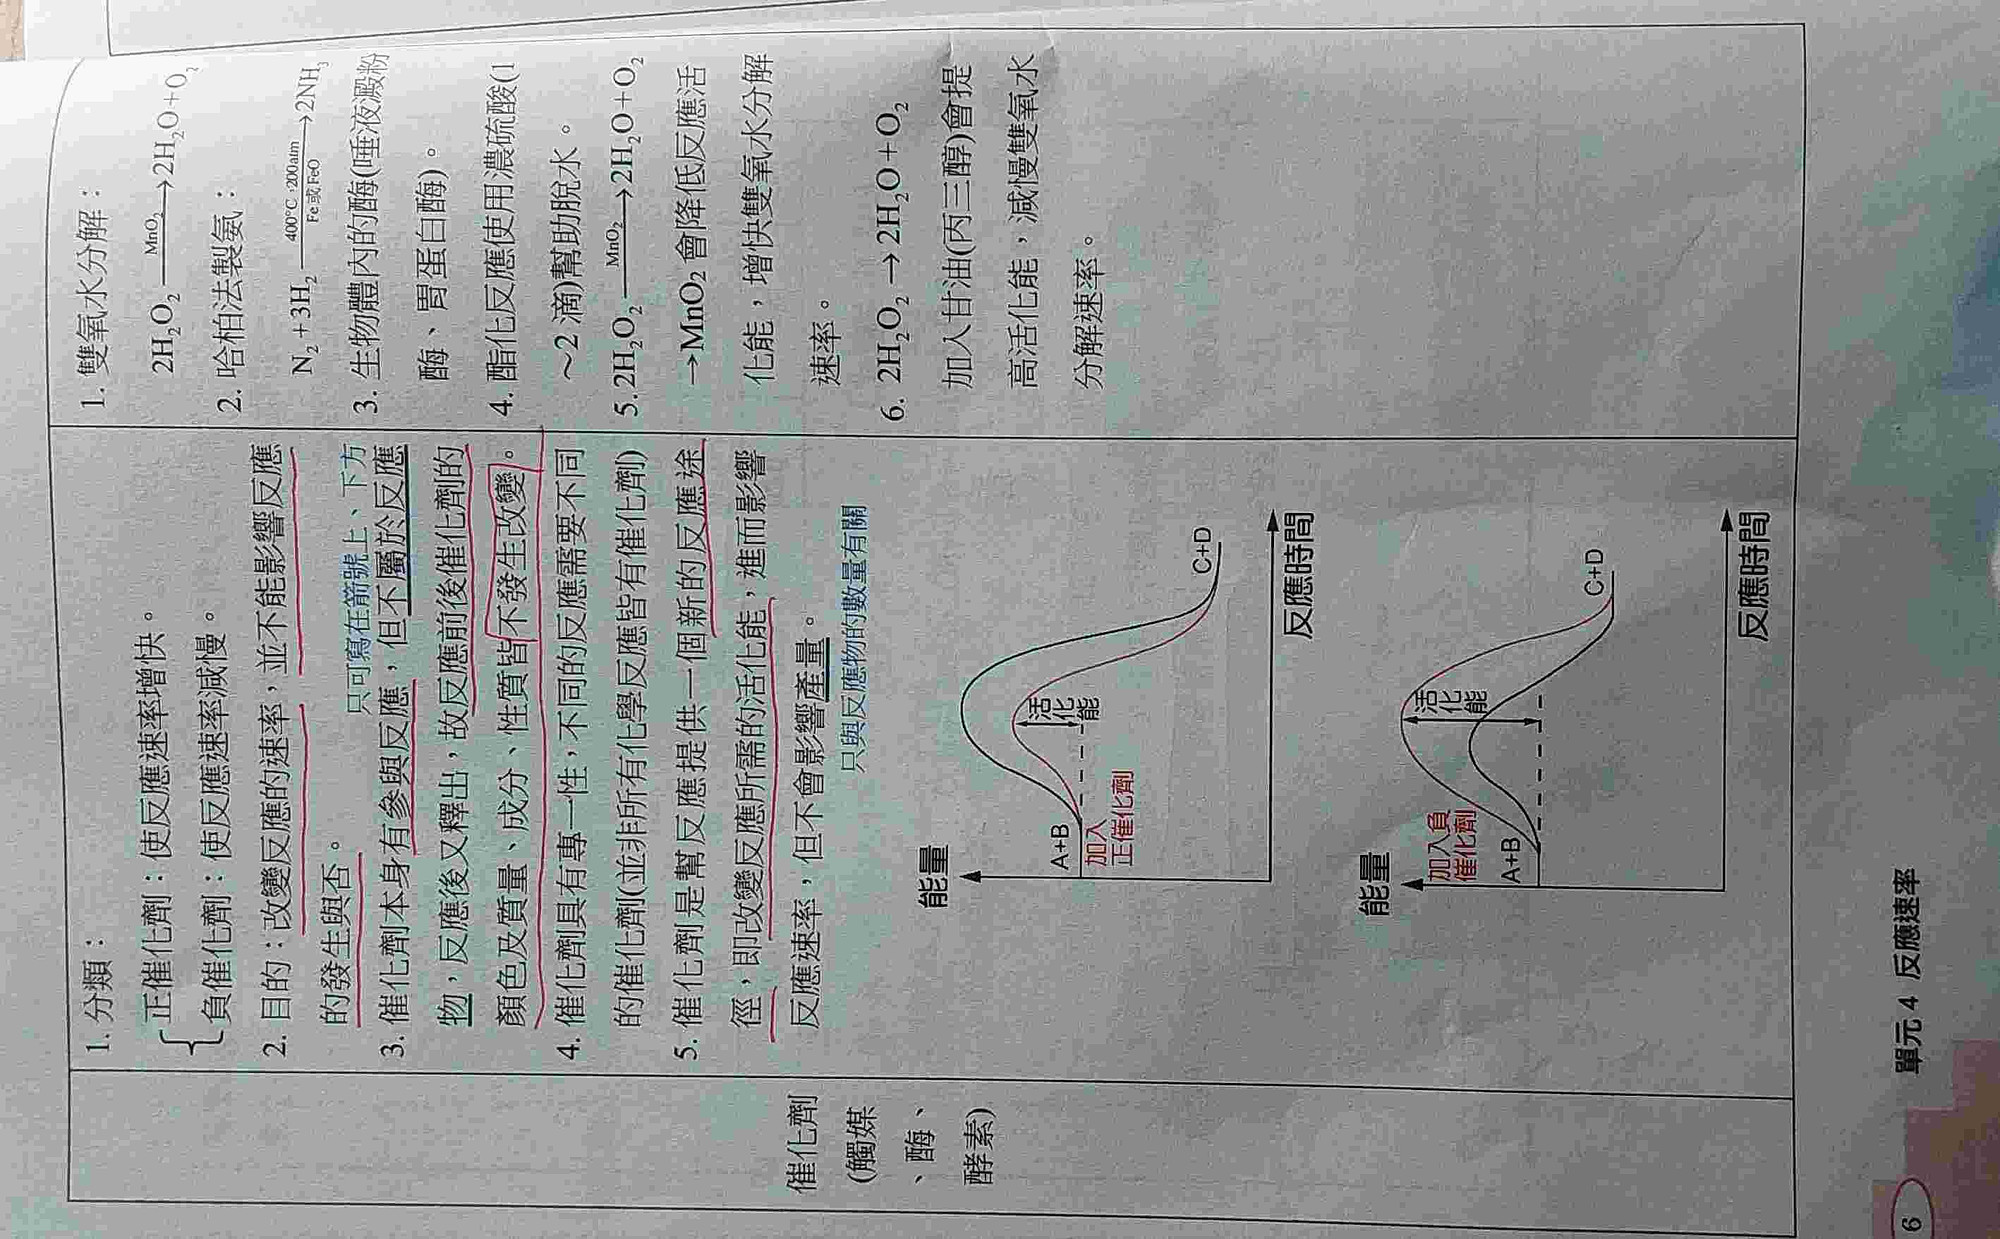 催化劑
(觸媒
、酶、
酵素)
1. 分類：
正催化劑：使反應速率增快。
負催化劑：使反應速率減慢。
2. 目的：改變反應的速率，並不能影響反應
的發生與否。
只可寫在箭號上、下方
3. 催化劑本身有參與反應，但不屬於反應
物，反應後又釋出，故反應前後催化劑的
顏色及質量、成分、性質皆不發生改變。
4. 催化劑具有專一性，不同的反應需要不同
的催化劑(並非所有化學反應皆有催化劑)
5. 催化劑是幫反應提供一個新的反應途
徑，即改變反應所需的活化能，進而影響
反應速率，但不會影響產量。
只與反應物的數量有關
能量
A+B
加入
正催化劑
活化能
C+D
反應時間
能量
加入負
催化劑
A+B
活化能
C+D
反應時間
1. 雙氧水分解：
2H₂O₂ —MnO₂→ 2H₂O+O₂
2. 哈柏法製氨：
N₂+3H₂ —400°C·200atm / Fe或FeO→ 2NH₃
3. 生物體內的酶(唾液澱粉
酶、胃蛋白酶)。
4. 酯化反應使用濃硫酸(1
～2 滴)幫助脫水。
5. 2H₂O₂ —MnO₂→ 2H₂O+O₂
→MnO₂ 會降低反應活
化能，增快雙氧水分解
速率。
6. 2H₂O₂→2H₂O+O₂
加入甘油(丙三醇)會提
高活化能，減慢雙氧水
分解速率。
6
單元 4 反應速率